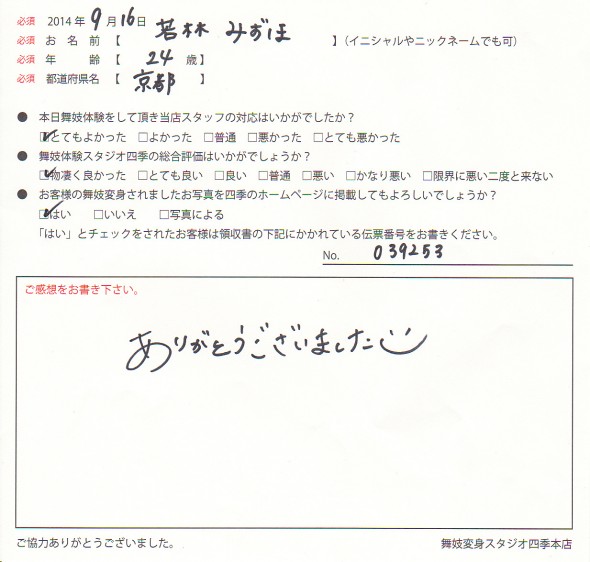 必須 2014年 9月16日
必須 お名前【 若林 みずほ 】(イニシャルやニックネームでも可)
必須 年齢【 24 歳】
必須 都道府県名【 京都 】
● 本日舞妓体験をして頂き当店スタッフの対応はいかがでしたか？
☑とてもよかった □よかった □普通 □悪かった □とても悪かった
● 舞妓体験スタジオ四季の総合評価はいかがでしょうか？
☑物凄く良かった □とても良い □良い □普通 □悪い □かなり悪い □限界に悪い二度と来ない
● お客様の舞妓変身されましたお写真を四季のホームページに掲載してもよろしいでしょうか？
☑はい □いいえ □写真による
「はい」とチェックをされたお客様は領収書の下記にかかれている伝票番号をお書きください。
No. 039253
ご感想をお書き下さい。
ありがとうございました
ご協力ありがとうございました。 舞妓変身スタジオ四季本店